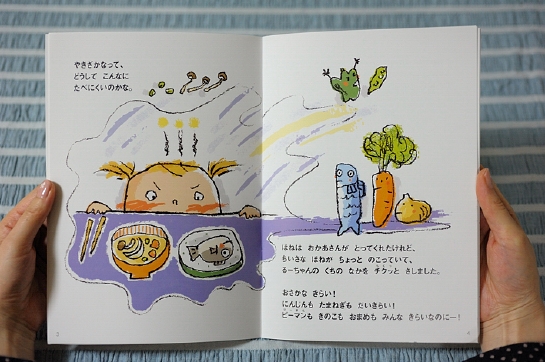 やきざかなって、
どうして こんなに
たべにくいのかな。
ほねは おかあさんが とってくれたけれど、
ちいさな ほねが ちょっと のこっていて、
るーちゃんの くちの なかを チクッと さしました。
おさかな きらい!
にんじんも たまねぎも だいきらい!
ピーマンも きのこも おまめも みんな きらいなのにー!
2